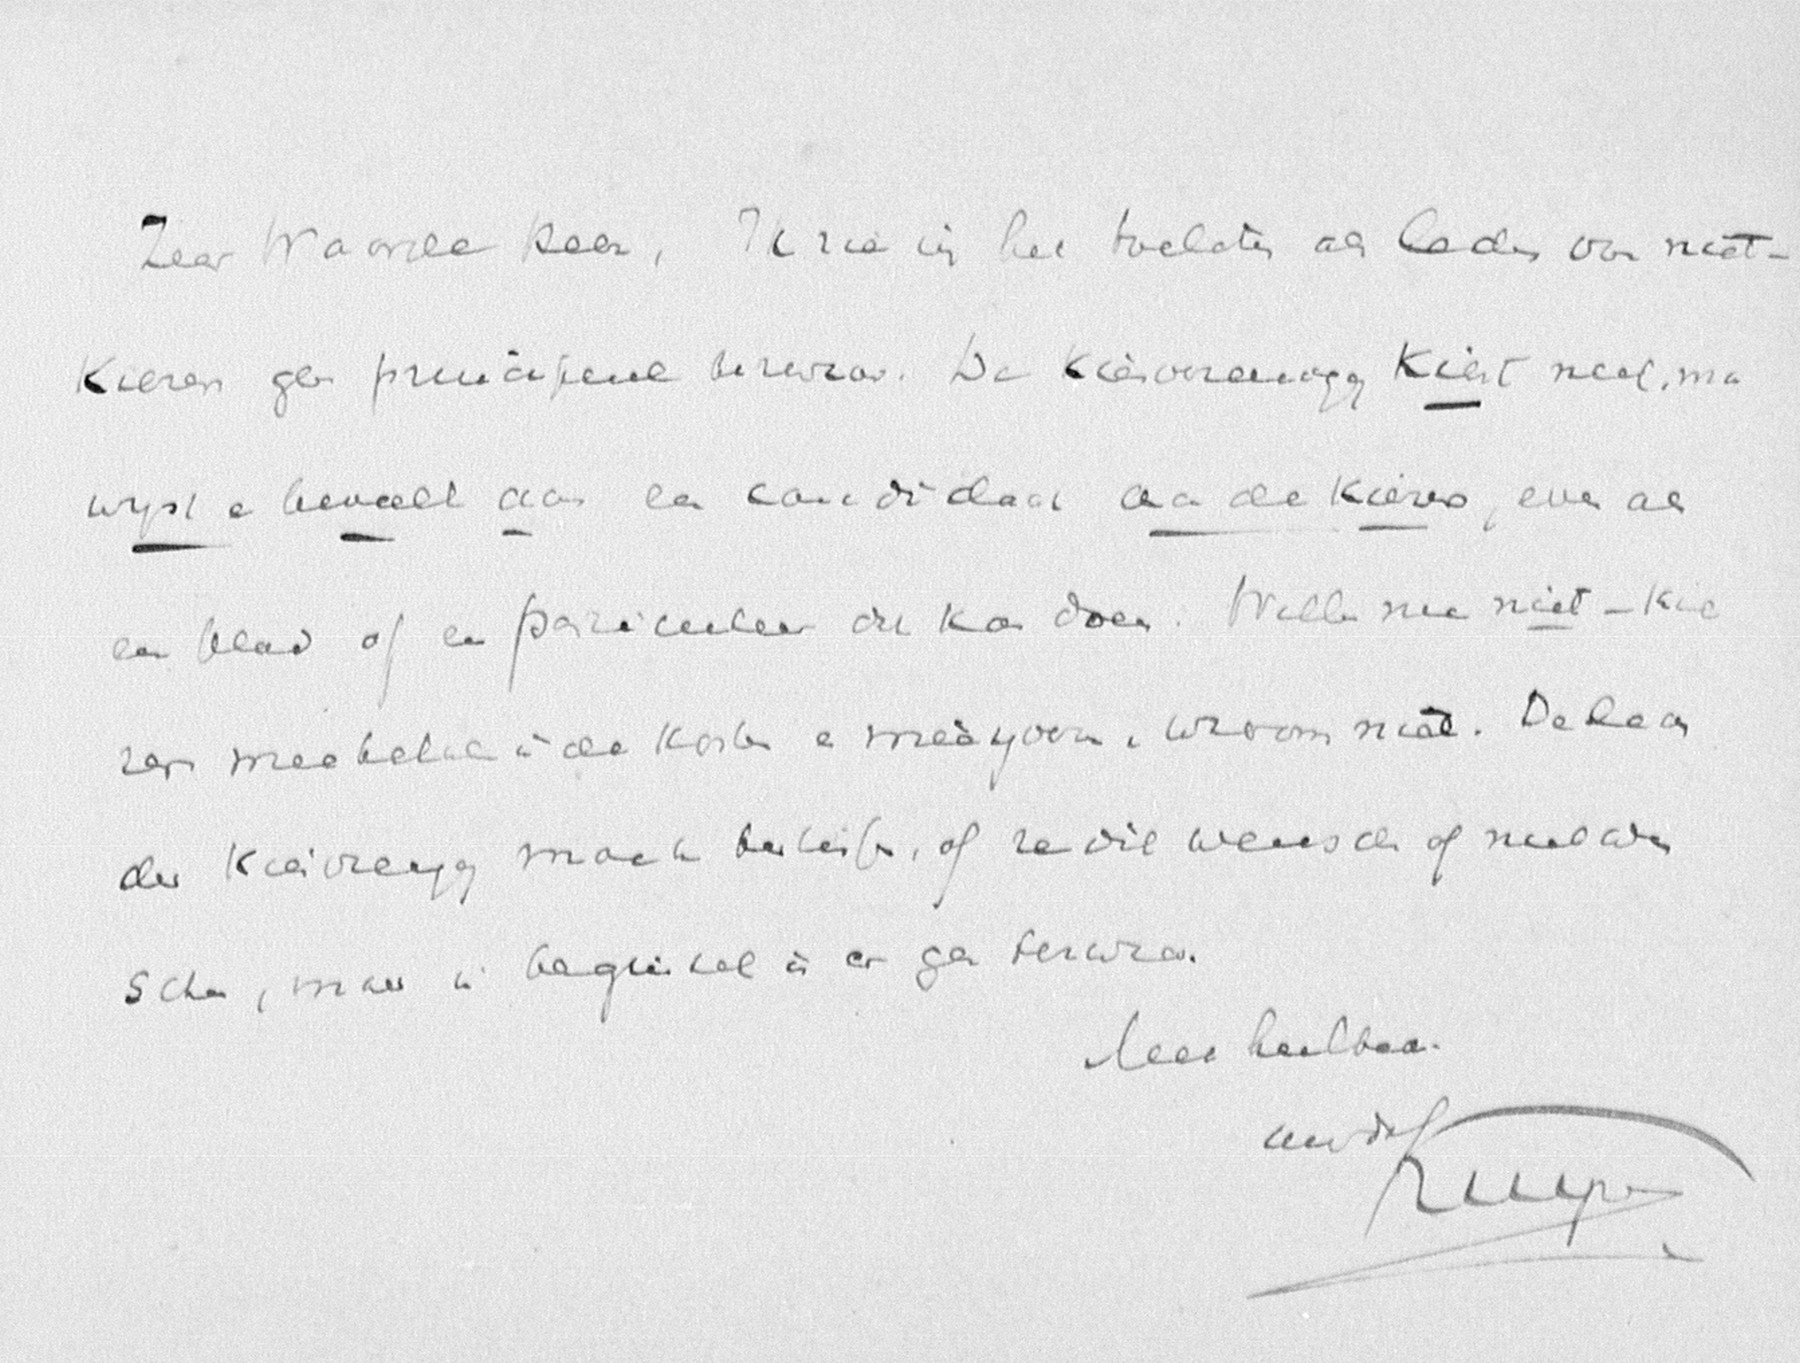 Zeer Waarde Heer, Ik zie in het toelaten als leden van niet-
kiezers geen principieel bezwaar. De kiesvereeniging kiest niet, maar
wijst en beveelt aan een candidaat aan de kiezers, even als
een blad of een particulier dit kan doen. Willen nu niet-kie
zers meebetalen in de kosten en meêijveren, waarom niet. De leden
der kiesvereenig moeten beslissen, of ze dit wenschen of niet wen
schen, maar in beginsel is er geen bezwaar.
Met heilbede.
uwdv
Kuyper